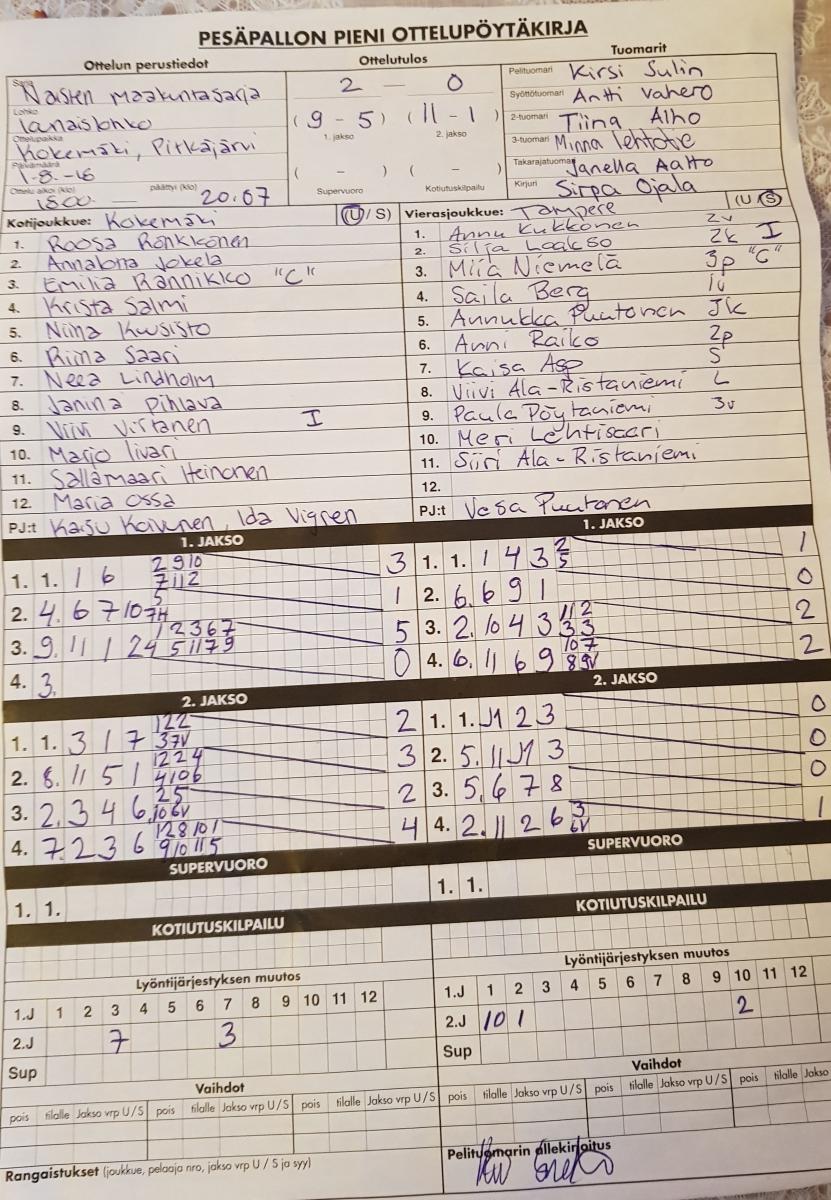 PESÄPALLON PIENI OTTELUPÖYTÄKIRJA
Ottelun perustiedot
Sarja Naisten maakuntasarja
Lohko
Ottelupaikka Kokemäki, Pitkäjärvi
Päivämäärä 1-8.-16
Ottelu alkoi (klo) 1800 — päättyi (klo) 20.07
Ottelutulos
2 — 0
(9 - 5) (11 - 1)
1. jakso 2. jakso
( - ) ( - )
Supervuoro Kotiutuskilpailu
Tuomarit
Pelituomari Kirsi Sulin
Syöttötuomari Antti Vahero
2-tuomari Tiina Alho
3-tuomari Minna Lehtotie
Takarajatuomari Janella Aalto
Kirjuri Sirpa Ojala
Kotijoukkue: Kokemäki (U/S)
1. Roosa Rönkkönen
2. Annalona Jokela
3. Emilia Rannikko "C"
4. Krista Salmi
5. Niina Kuusisto
6. Riina Saari
7. Neea Lindholm
8. Janina Pihlava
9. Viivi Virtanen I
10. Marjo Iivari
11. Sallamaari Heinonen
12. Maria Ossa
PJ:t Kaisu Koivunen, Ida Vigren
Vierasjoukkue: Tampere (U/S)
1. Annu Kukkonen 2v
2. Silja Laakso 2k I
3. Miia Niemelä 3p "C"
4. Saila Berg 1v
5. Annukka Puutonen JK
6. Anni Raiko 2p
7. Kaisa Asp S
8. Viivi Ala-Ristaniemi L
9. Paula Pöytäniemi 3v
10. Meri Lehtisaari
11. Siiri Ala-Ristaniemi
12.
PJ:t Vesa Puutonen
1. JAKSO
1. 1. 1 6 2 9 10 7 11 2 3
2. 4. 6 7 10 5 7 4 1
3. 9. 11 1 2 4 1 2 3 6 7 5 11 7 9 5
4. 3. 0
1. JAKSO
1. 1. 1 4 3 2 5 1
2. 6. 6 9 1 0
3. 2. 10 4 3 11 2 3 3 2
4. 6. 11 6 9 10 7 8 9V 2
2. JAKSO
1. 1. 3 1 7 1 2 2 3 7V 2
2. 8. 11 5 1 1 2 2 4 4 10 6 3
3. 2. 3 4 6 2 5 10 6V 2
4. 7. 2 3 6 1 2 8 10 1 9 10 11 5 4
2. JAKSO
1. 1. J1 2 3 0
2. 5. 11 J1 3 0
3. 5. 6 7 8 0
4. 2. 11 2 6 3 6V 1
SUPERVUORO
1. 1.
SUPERVUORO
1. 1.
KOTIUTUSKILPAILU
KOTIUTUSKILPAILU
Lyöntijärjestyksen muutos
1.J 1 2 3 4 5 6 7 8 9 10 11 12
2.J 7 3
Sup
Lyöntijärjestyksen muutos
1.J 1 2 3 4 5 6 7 8 9 10 11 12
2.J 10 1 2
Sup
Vaihdot
pois tilalle Jakso vrp U/S pois tilalle Jakso vrp U/S pois tilalle Jakso vrp U/S
Vaihdot
pois tilalle Jakso vrp U/S pois tilalle Jakso vrp U/S pois tilalle Jakso
Rangaistukset (joukkue, pelaaja nro, jakso vrp U / S ja syy)
Pelituomarin allekirjoitus